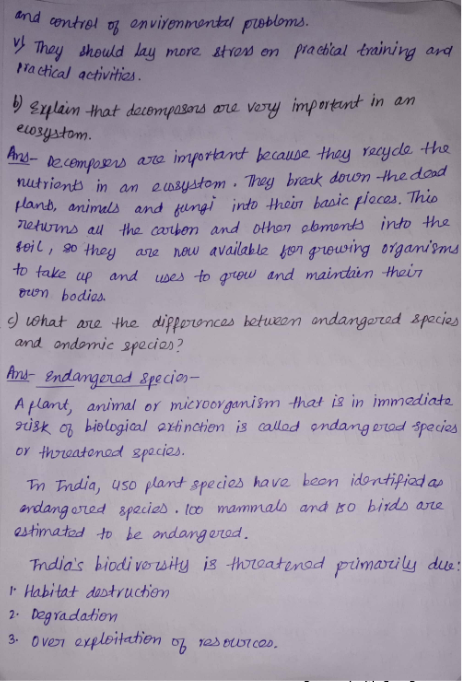 and control of environmental problems.
v) They should lay more stress on practical training and
practical activities.
b) Explain that decomposers are very important in an
ecosystem.
Ans- Decomposers are important because they recycle the
nutrients in an ecosystem. They break down the dead
plants, animals and fungi into their basic pieces. This
returns all the carbon and other elements into the
soil, so they are now available for growing organisms
to take up and uses to grow and maintain their
own bodies.
c) What are the differences between endangered species
and endemic species?
Ans- Endangered species-
A plant, animal or microorganism that is in immediate
risk of biological extinction is called endangered species
or threatened species.
In India, 450 plant species have been identified as
endangered species. 100 mammals and 150 birds are
estimated to be endangered.
India's biodiversity is threatened primarily due:
1. Habitat destruction
2. Degradation
3. Over exploitation of resources.